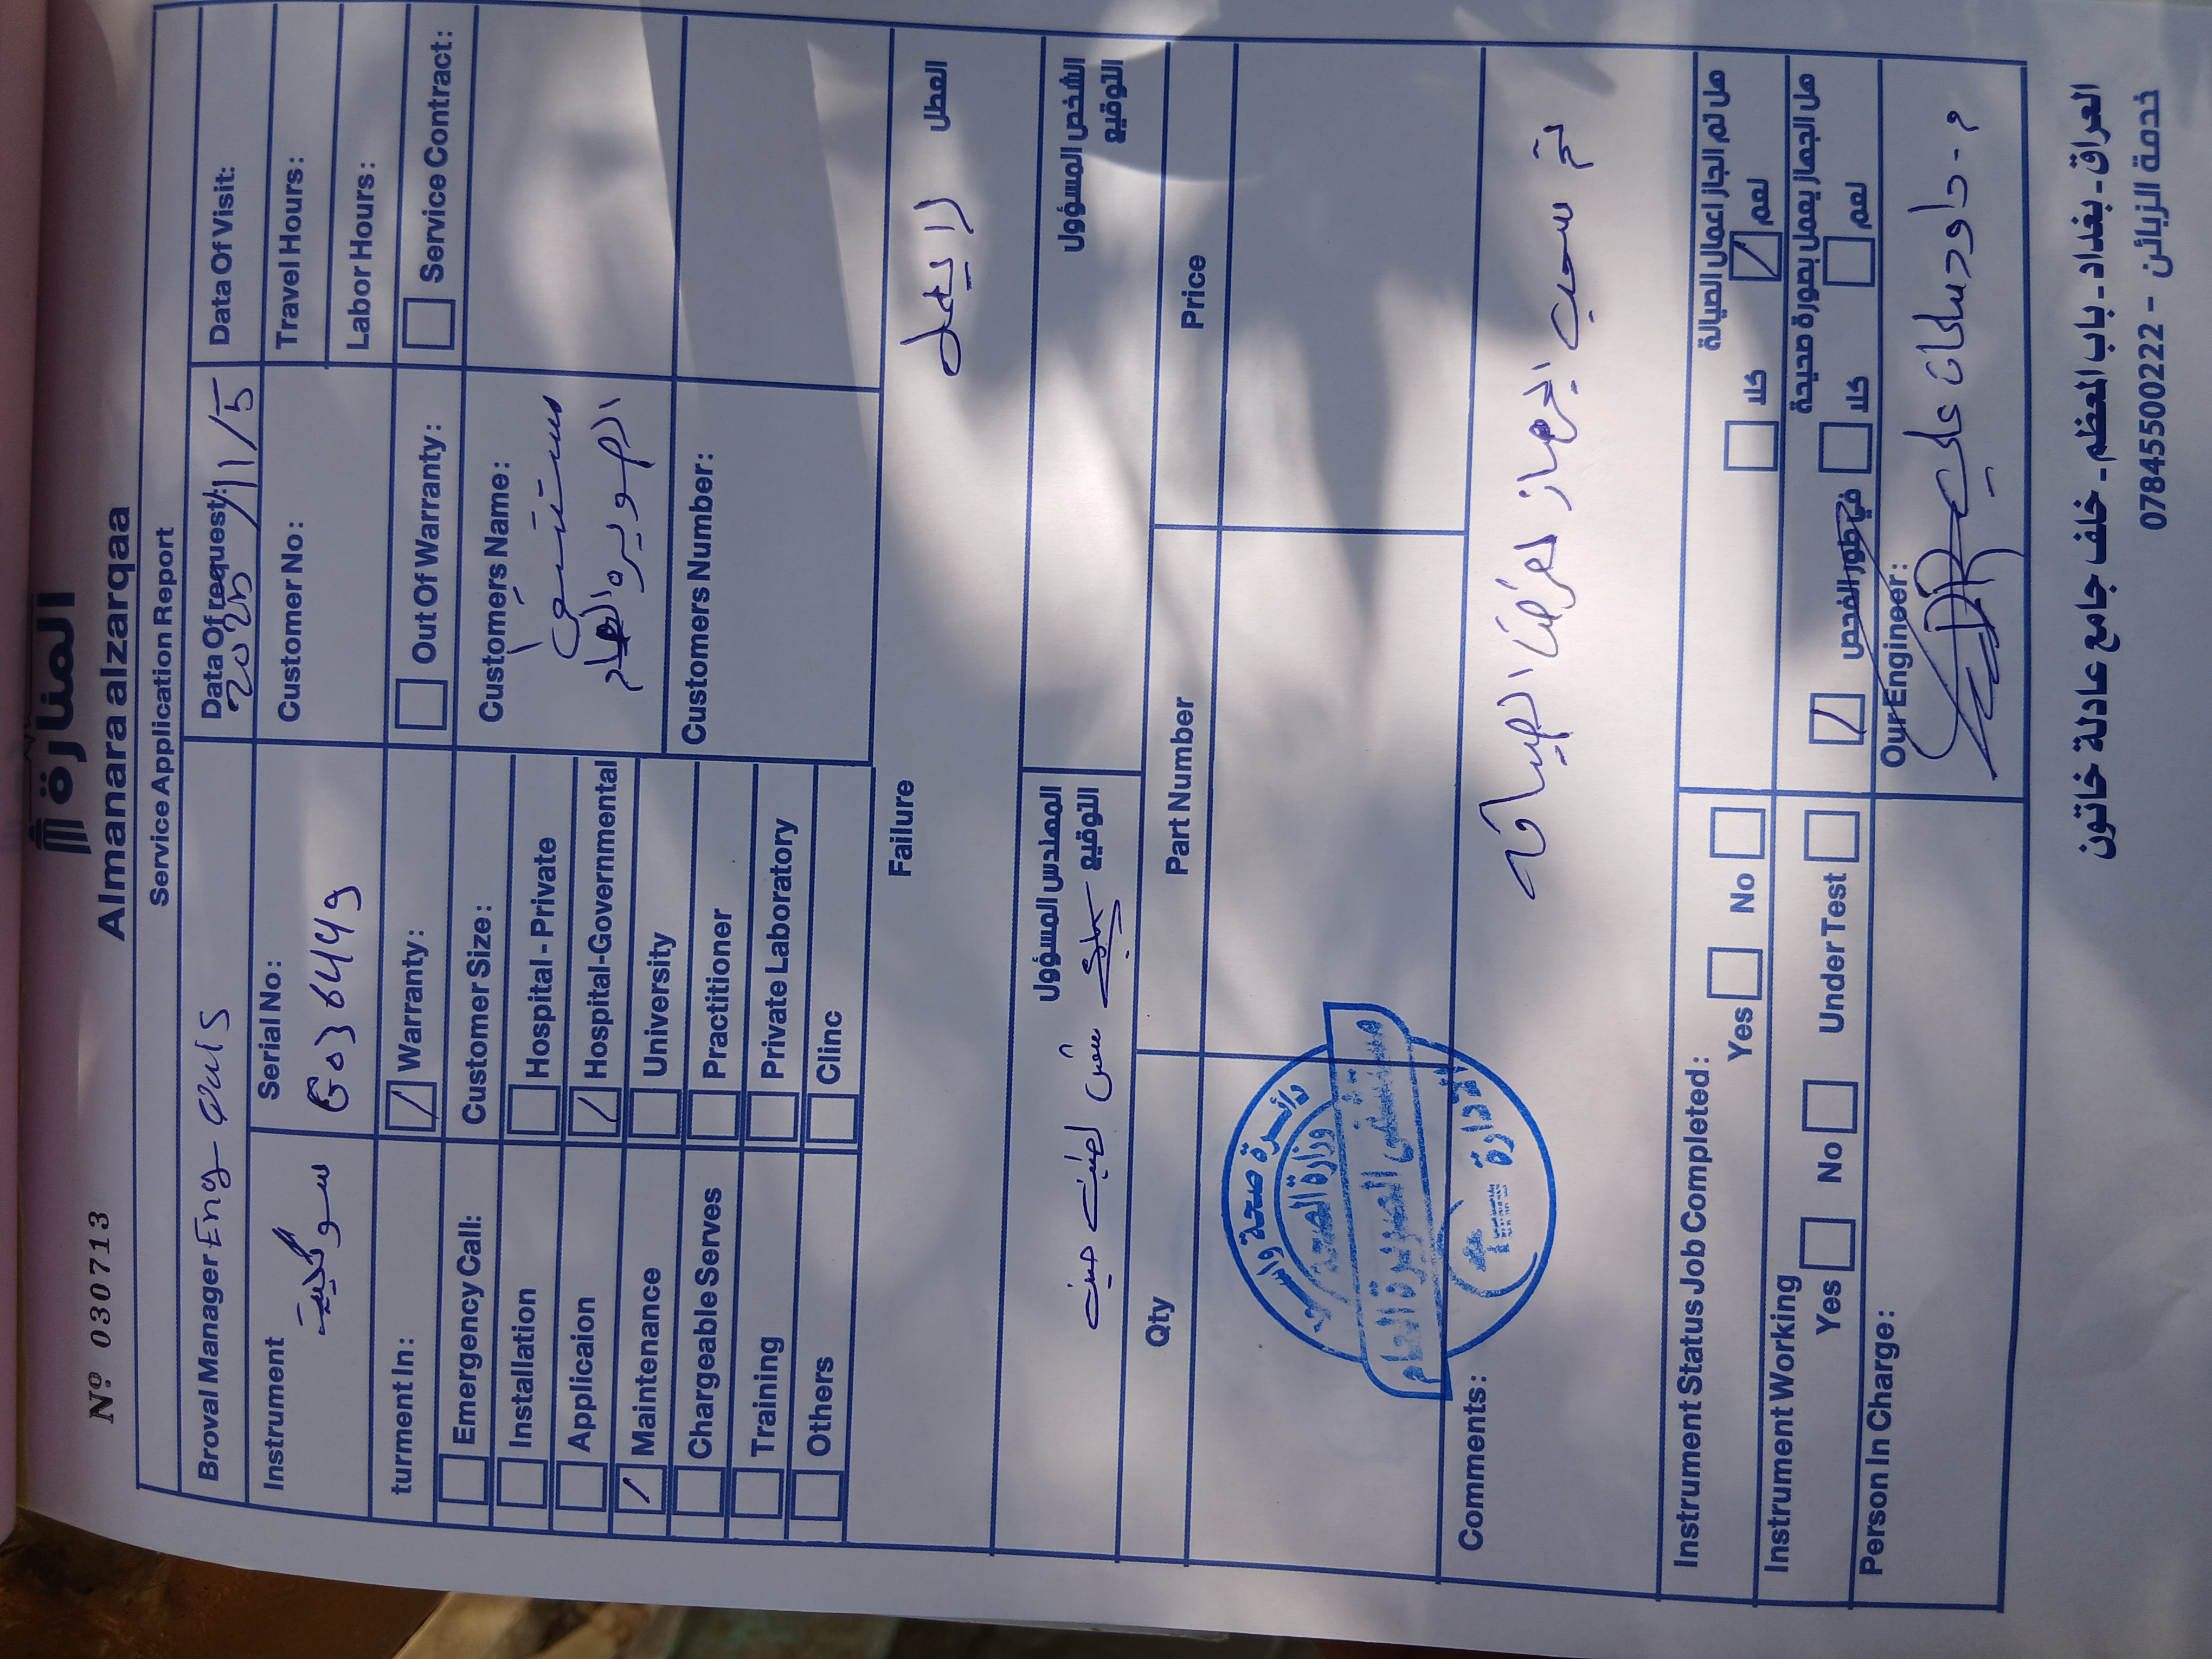 المنارة
Almanara alzarqaa
Nº 030713
Service Application Report
Broval Manager Eng-
Data Of request: 2025/11/5
Data Of Visit:
Instrument
Serial No: 6036449
Customer No:
Travel Hours:
Labor Hours:
turment In:
Warranty:
Out Of Warranty:
Service Contract:
Emergency Call:
Customer Size:
Customers Name:
مستشفى
الصويره العام
Installation
Hospital - Private
Applicaion
Hospital-Governmental
Maintenance
University
Customers Number:
Chargeable Serves
Practitioner
Training
Private Laboratory
Others
Clinc
Failure
العطل
لا يعمل
المهندس المسؤول
التوقيع
الشخص المسؤول
التوقيع
Qty
Part Number
Price
دائرة صحة واسط
وزارة الصحة
مستشفى الصويرة العام
الادارة
Comments:
تم سحب الجهاز لغرض الصيانه
Instrument Status Job Completed:
Yes
No
هل تم انجاز اعمال الصيانة
كلا
نعم
Instrument Working
Yes
No
Under Test
هل الجهاز يعمل بصورة صحيحة
في طور الفحص
كلا
نعم
Person In Charge:
Our Engineer:
م. داود سلمان علي
العراق - بغداد - باب المعظم - خلف جامع عادلة خاتون
خدمة الزبائن - 07845500222